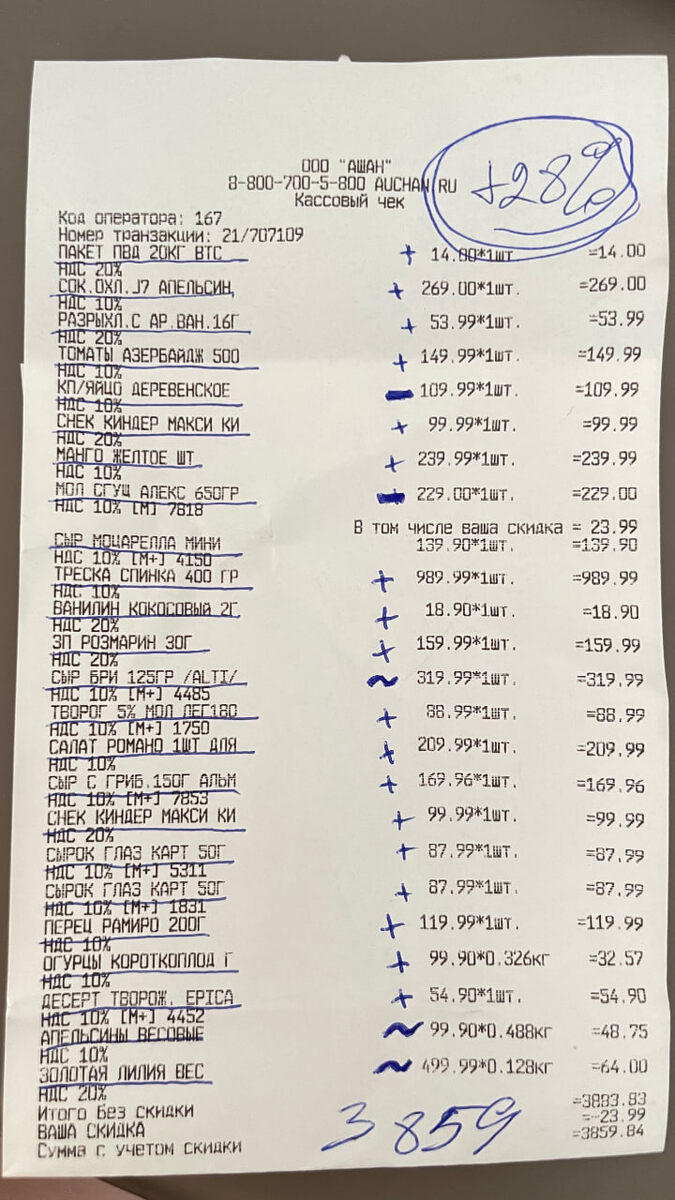 +28%
ООО "АШАН"
8-800-700-5-800 AUCHAN.RU
Кассовый чек
Код оператора: 167
Номер транзакции: 21/707109
ПАКЕТ ПВД 20КГ ВТС + 14.00*1шт. =14.00
НДС 20%
СОК.ОХЛ.J7 АПЕЛЬСИН, + 269.00*1шт. =269.00
НДС 10%
РАЗРЫХЛ.С АР.ВАН.16Г + 53.99*1шт. =53.99
НДС 20%
ТОМАТЫ АЗЕРБАЙДЖ 500 + 149.99*1шт. =149.99
НДС 10%
КП/ЯЙЦО ДЕРЕВЕНСКОЕ - 109.99*1шт. =109.99
НДС 10%
СНЕК КИНДЕР МАКСИ КИ + 99.99*1шт. =99.99
НДС 20%
МАНГО ЖЕЛТОЕ ШТ + 239.99*1шт. =239.99
НДС 10%
МОЛ СГУЩ АЛЕКС 650ГР - 229.00*1шт. =229.00
НДС 10% [М] 7818
В том числе ваша скидка = 23.99
СЫР МОЦАРЕЛЛА МИНИ 139.90*1шт. =139.90
НДС 10% [М+] 4150
ТРЕСКА СПИНКА 400 ГР + 989.99*1шт. =989.99
НДС 10%
ВАНИЛИН КОКОСОВЫЙ 2Г + 18.90*1шт. =18.90
НДС 20%
ЗП РОЗМАРИН 30Г + 159.99*1шт. =159.99
НДС 20%
СЫР БРИ 125ГР /ALTI/ ~ 319.99*1шт. =319.99
НДС 10% [М+] 4485
ТВОРОГ 5% МОЛ ЛЕГ180 + 88.99*1шт. =88.99
НДС 10% [М+] 1750
САЛАТ РОМАНО 1ШТ ДЛЯ + 209.99*1шт. =209.99
НДС 10%
СЫР С ГРИБ.150Г АЛЬМ + 169.96*1шт. =169.96
НДС 10% [М+] 7853
СНЕК КИНДЕР МАКСИ КИ + 99.99*1шт. =99.99
НДС 20%
СЫРОК ГЛАЗ КАРТ 50Г + 87.99*1шт. =87.99
НДС 10% [М+] 5311
СЫРОК ГЛАЗ КАРТ 50Г + 87.99*1шт. =87.99
НДС 10% [М+] 1831
ПЕРЕЦ РАМИРО 200Г + 119.99*1шт. =119.99
НДС 10%
ОГУРЦЫ КОРОТКОПЛОД Г + 99.90*0.326кг =32.57
НДС 10%
ДЕСЕРТ ТВОРОЖ. EPICA + 54.90*1шт. =54.90
НДС 10% [М+] 4452
АПЕЛЬСИНЫ ВЕСОВЫЕ ~ 99.90*0.488кг =48.75
НДС 10%
ЗОЛОТАЯ ЛИЛИЯ ВЕС ~ 499.99*0.128кг =64.00
НДС 20%
Итого без скидки =3883.83
ВАША СКИДКА =-23.99
Сумма с учетом скидки =3859.84
3859